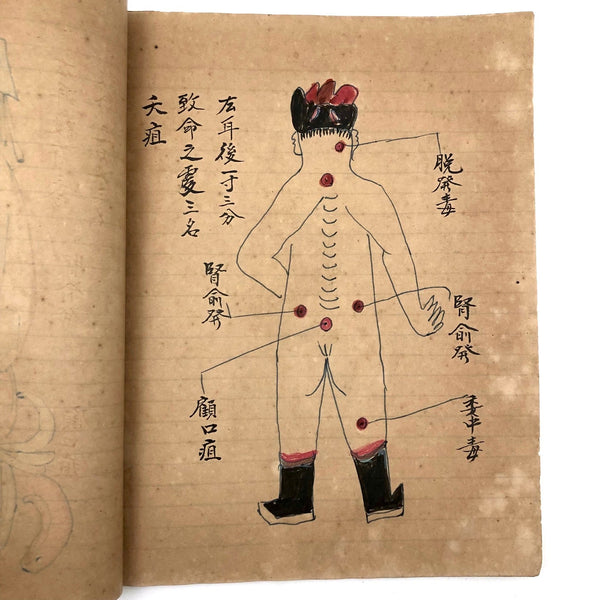 脱發毒
腎俞發
委中毒
左耳後一寸三分
致命之處三名
夭疽
腎俞發
顧口疽